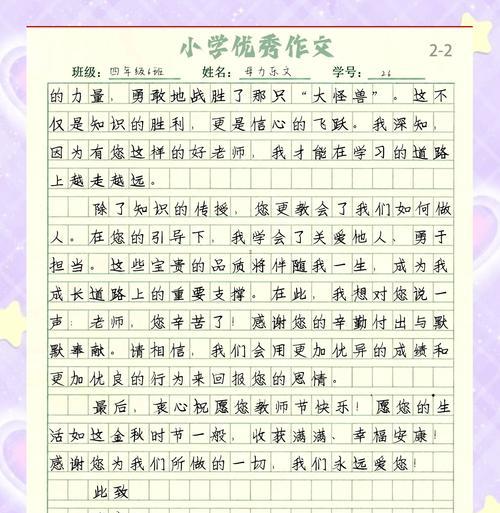 小学优秀作文
2-2
班级：四年级6班 姓名：母力乐文 学号：26
的力量，勇敢地战胜了那只“大怪兽”。这不
仅是知识的胜利，更是信心的飞跃。我深知，
因为有您这样的好老师，我才能在学习的道路
上越走越远。
除了知识的传授，您更教会了我们如何做
人。在您的引导下，我学会了关爱他人、勇于
担当。这些宝贵的品质将伴随我一生，成为我
成长道路上的重要支撑。在此，我想对您说一
声：老师，您辛苦了！感谢您的辛勤付出与默
默奉献。请相信，我们会用更加优异的成绩和
更加优良的行为来回报您的恩情。
最后，衷心祝愿您教师节快乐！愿您的生
活如这金秋时节一般，收获满满、幸福安康！
感谢您为我们所做的一切，我们永远爱您！
此致